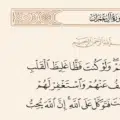 وَلَوْ كُنتَ فَظًّا غَلِيظَ ٱلْقَلْبِ
عَنْهُمْ وَٱسْتَغْفِرْ لَهُمْ
فَتَوَكَّلْ عَلَى ٱللَّهِ إِنَّ ٱللَّهَ يُحِبُّ